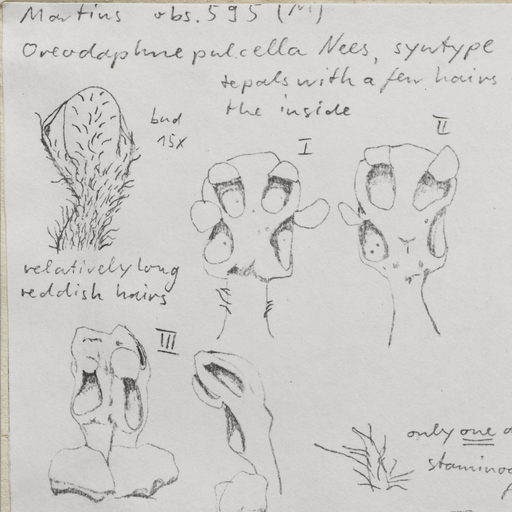 Martius obs. 595 (M)
Oreodaphne pulcella Nees, syntype
tepals with a few hairs
the inside
bud
15x
I
II
relatively long
reddish hairs
III
only one